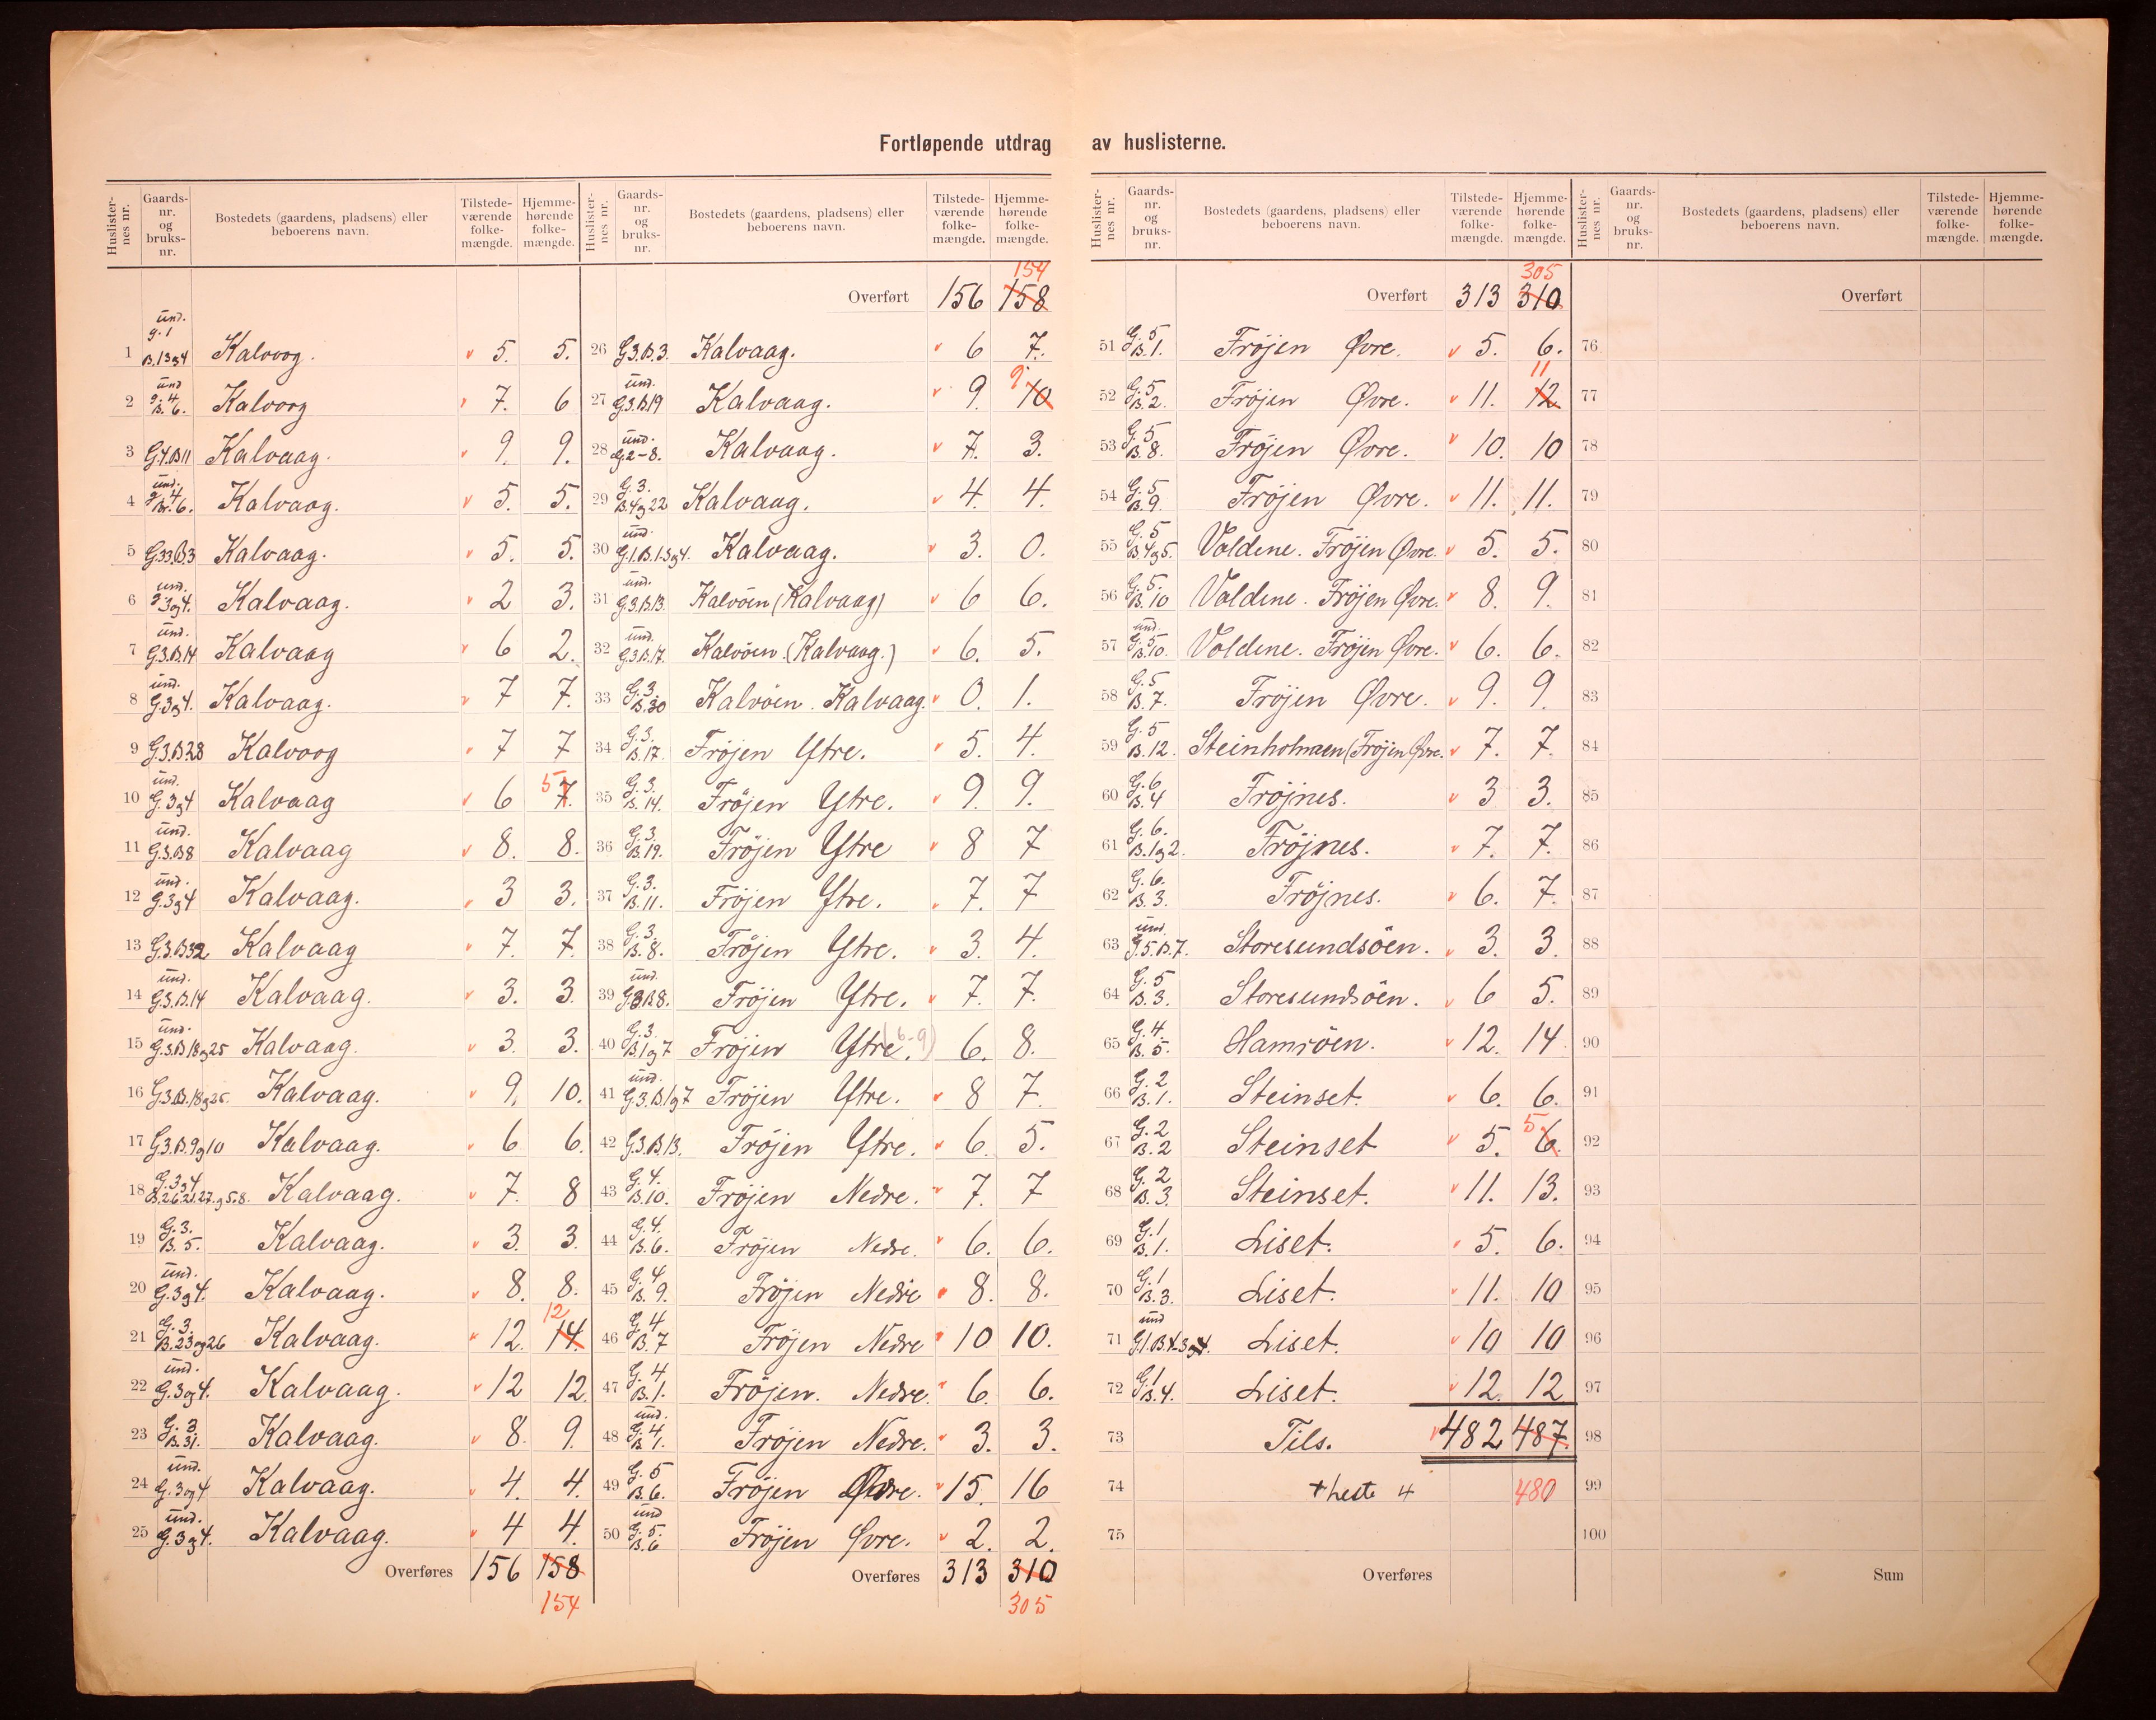 Fortløpende utdrag av huslisterne.
Huslister-nes nr. Gaards-nr. og bruks-nr. Bostedets (gaardens, pladsens) eller beboerens navn. Tilstede-værende folke-mængde. Hjemme-hørende folke-mængde.
1 und. g. 1 B. 1 3 og 4 Kalvoog. 5. 5.
2 und g. 4 B. 6. Kalvoog 7. 6
3 G.4.B11 Kalvaag. 9. 9.
4 und. g. 4 Br. 6. Kalvaag. 5. 5.
5 G.33.B.3 Kalvaag. 5. 5.
6 und. g. 3 og 4. Kalvaag. 2 3.
7 und. G.3.B.14 Kalvaag 6 2.
8 und. G. 3 og 4. Kalvaag. 7 7.
9 G.3.B28 Kalvoog 7 7
10 und. G. 3 og 4 Kalvaag 6 7. 5
11 und. G.3.B8 Kalvaag 8. 8.
12 und. G. 3 og 4 Kalvaag. 3 3.
13 G.3.B32 Kalvaag 7. 7.
14 und. G.3.B.14 Kalvaag. 3. 3.
15 und. G.3.B 18 og 25 Kalvaag. 3. 3.
16 G.3.B.18 og 25. Kalvaag. 9. 10.
17 G.3.B.9 og 10 Kalvaag. 6 6.
18 G. 3 og 4 B.26.21.27. og 5.8. Kalvaag. 7. 8
19 G. 3. B. 5. Kalvaag. 3. 3.
20 und. G. 3 og 4. Kalvaag. 8. 8.
21 G. 3. B. 23 og 26 Kalvaag. 12. 14. 12
22 und. G. 3 og 4. Kalvaag. 12 12.
23 G. 3. B. 31. Kalvaag. 8. 9.
24 und. G. 3 og 4 Kalvaag. 4. 4.
25 und. G. 3 og 4. Kalvaag. 4 4.
Overføres 156 158
154
Huslister-nes nr. Gaards-nr. og bruks-nr. Bostedets (gaardens, pladsens) eller beboerens navn. Tilstede-værende folke-mængde. Hjemme-hørende folke-mængde.
154
Overført 156 158
26 G.3.B.3. Kalvaag. 6 7.
27 und. G.3.B.19 Kalvaag. 9. 10 9
28 und. G. 2-8. Kalvaag. 7. 3.
29 G. 3. B.4 og 22 Kalvaag. 4. 4.
30 und. G.1.B.1.3 og 4. Kalvaag. 3. 0.
31 und. G.3.B.13. Kalvöen (Kalvaag) 6 6.
32 und. G.3.B.17. Kalvöen. (Kalvaag.) 6. 5.
33 G. 3. B.30 Kalvöen. Kalvaag. 0. 1.
34 G. 3. B. 17. Fröjen Ytre. 5. 4.
35 G. 3. B. 14. Fröjen Ytre. 9. 9.
36 G. 3. B. 19. Fröjen Ytre 8 7
37 G. 3. B. 11. Fröjen Ytre. 7. 7
38 G. 3. B. 8. Fröjen Ytre. 3. 4.
39 und. G.3.B8. Fröjen Ytre. 7. 7.
40 G. 3. B.1 og 7 Fröjen Ytre. (6-9) 6. 8.
41 und. G.3.B.1 og 7 Fröjen Ytre. 8 7.
42 G.3.B.13. Fröjen Ytre. 6. 5.
43 G. 4. B.10. Fröjen Nedre. 7. 7
44 G. 4. B. 6. Fröjen Nedre. 6. 6.
45 G. 4 B. 9. Fröjen Nedre 8. 8.
46 G. 4 B. 7 Fröjen Nedre 10 10.
47 G. 4 B. 1. Fröjen. Nedre. 6. 6.
48 und. G. 4. B 1. Fröjen Nedre. 3. 3.
49 G. 5 B. 6. Fröjen Øvre. 15. 16
50 und G. 5. B. 6 Fröjen Øvre. 2. 2.
Overføres 313 310
305
Huslister-nes nr. Gaards-nr. og bruks-nr. Bostedets (gaardens, pladsens) eller beboerens navn. Tilstede-værende folke-mængde. Hjemme-hørende folke-mængde.
305
Overført 313 310
51 G. 5 B. 1. Fröjen Øvre. 5. 6.
52 G. 5 B. 2. Fröjen Øvre. 11. 12 11
53 G. 5 B. 8. Fröjen Øvre. 10. 10
54 G. 5 B. 9. Fröjen Øvre. 11. 11.
55 G. 5 B 4 og 5. Valdene. Fröjen Øvre. 5. 5.
56 G. 5. B. 10 Valdene. Fröjen Øvre. 8. 9.
57 und. G. 5 B. 10. Voldene. Fröjen Øvre. 6. 6.
58 G. 5 B. 7. Fröjen Øvre. 9. 9.
59 G. 5 B. 12. Steinholmen (Fröjen Øvre. 7. 7.
60 G. 6 B. 4 Fröjnes. 3 3.
61 G. 6. B. 1 og 2. Fröjnes. 7. 7.
62 G. 6. B. 3. Fröjnes. 6. 7.
63 und. G.5.B.7. Storesundsöen. 3. 3.
64 G. 5 B. 3. Storesundsöen. 6 5.
65 G. 4. B. 5. Hamröen. 12. 14
66 G. 2 B. 1. Steinset. 6. 6.
67 G. 2 B. 2 Steinset 5. 6. 5
68 G. 2 B. 3. Steinset. 11. 13.
69 G. 1 B. 1. Liset. 5. 6.
70 G. 1 B. 3. Liset. 11. 10
71 und G.1.B.1-3 og 4. Liset. 10 10
72 G. 1 B. 4. Liset. 12. 12
73 Tils. 482 487.
74 + heste 4 480
75
Overføres
Huslister-nes nr. Gaards-nr. og bruks-nr. Bostedets (gaardens, pladsens) eller beboerens navn. Tilstede-værende folke-mængde. Hjemme-hørende folke-mængde.
Overført
76
77
78
79
80
81
82
83
84
85
86
87
88
89
90
91
92
93
94
95
96
97
98
99
100
Sum